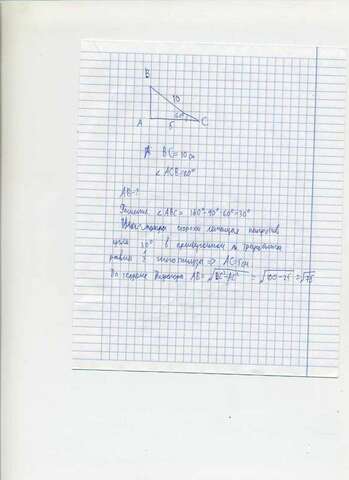 B
10
60°
A 5 C
BC=10см
∠ACB=60°
AB=?
Решение ∠ABC = 180°-90°-60°=30°
сторона лежащая напротив
угла 30° в прямоугольном треугольнике
равна гипотенузы ⇒ AC=5см
По теореме Пифагора AB=√BC²-AC² = √100-25 = √75